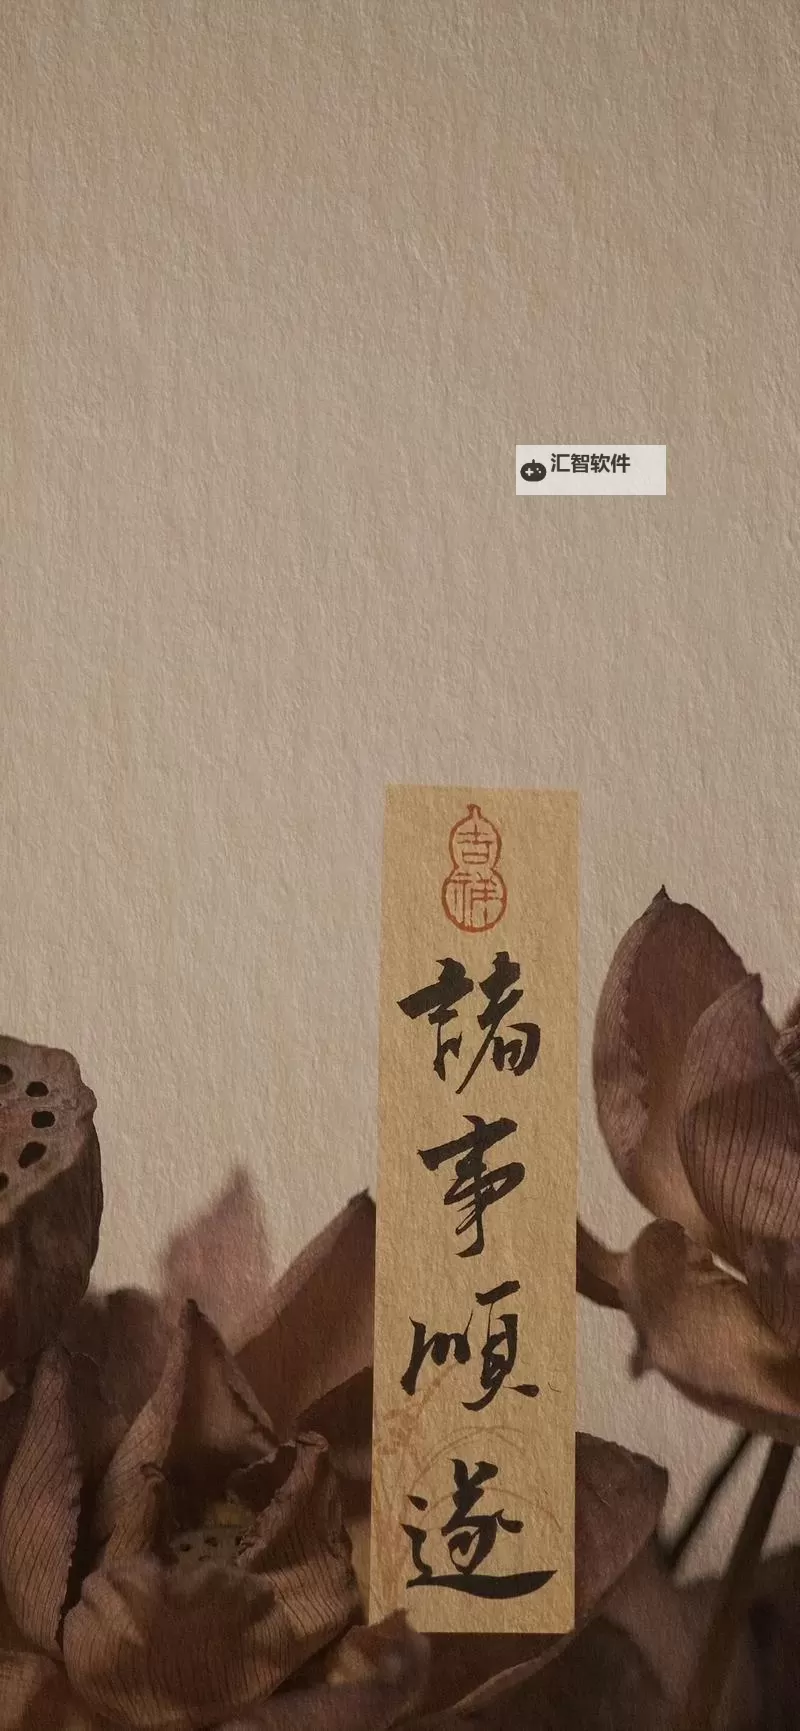 汇智软件
吉祥
諸事順遂